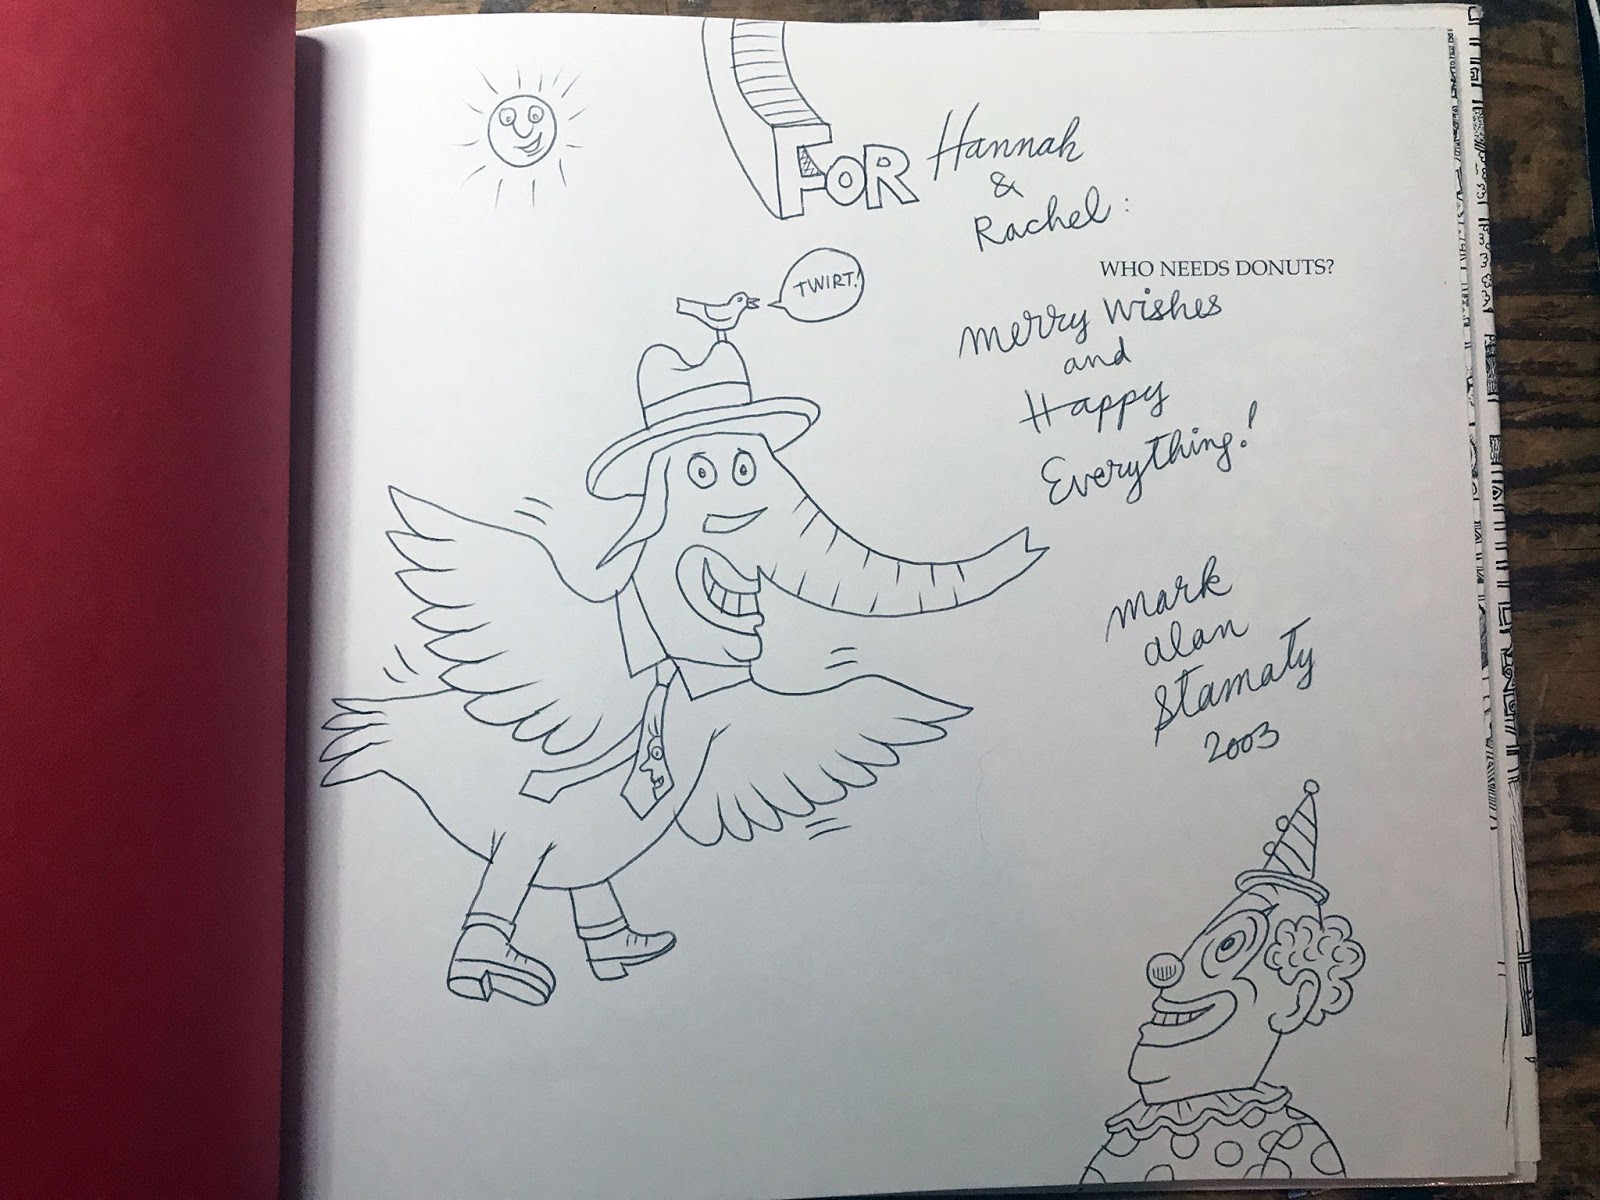 FOR Hannah
&
Rachel:
WHO NEEDS DONUTS?
TWIRT!
Merry Wishes
and
Happy
Everything!
Mark
Alan
Stamaty
2003